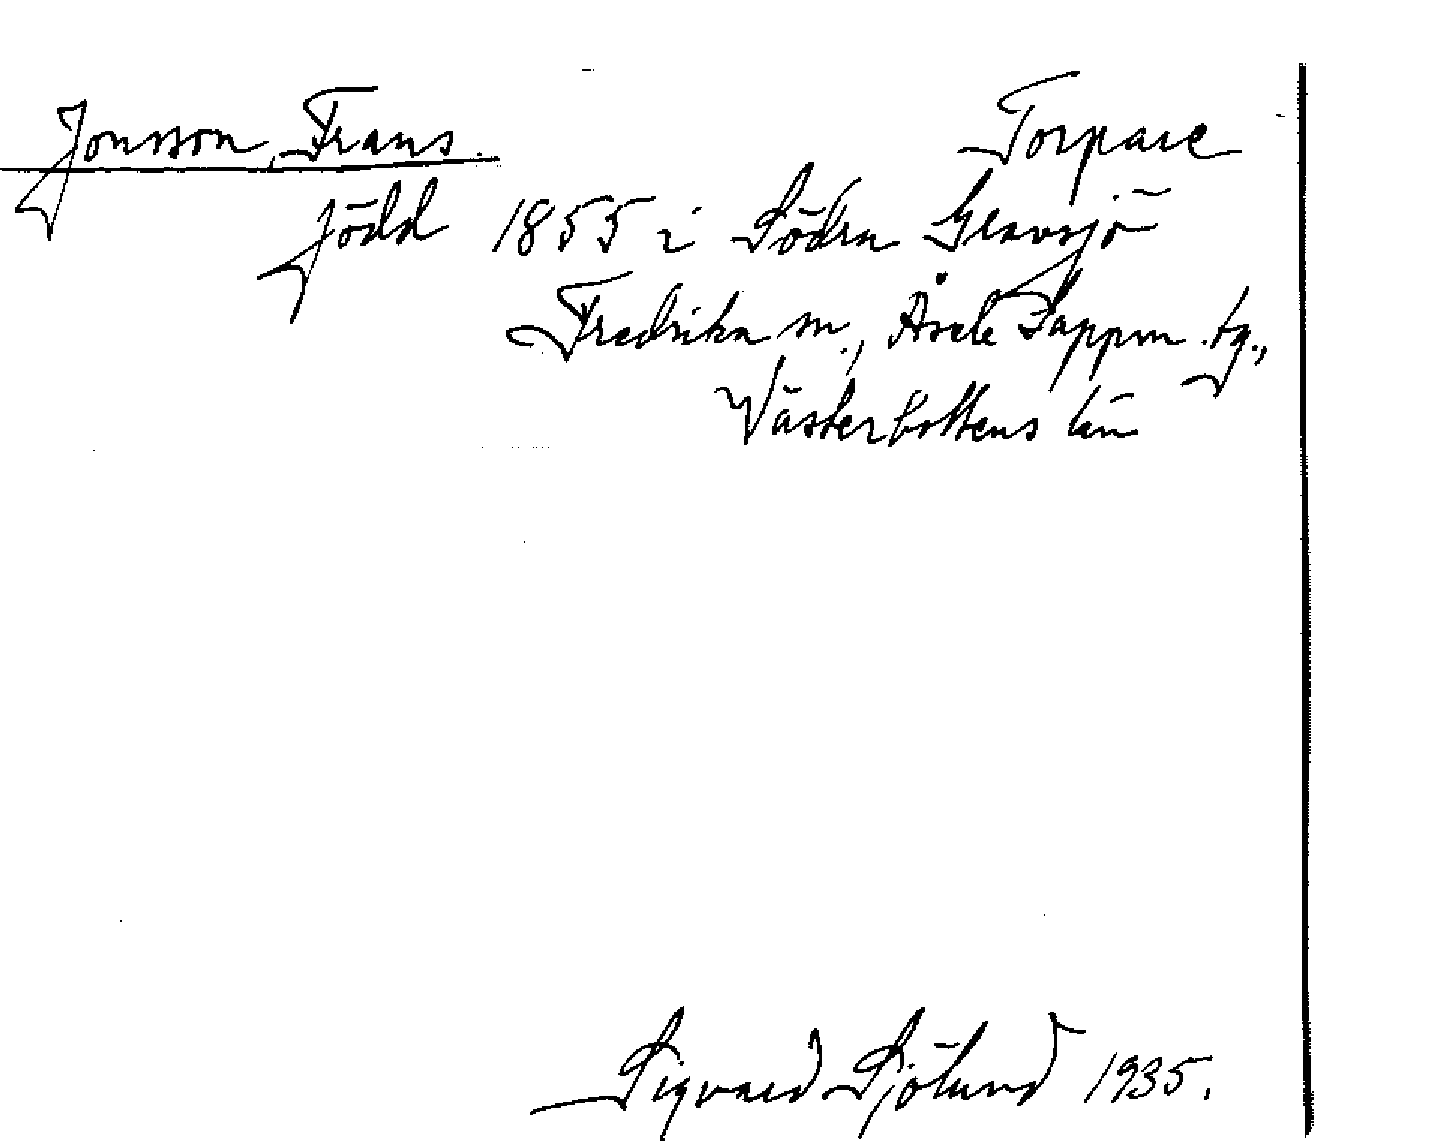 Jonsson, Frans. Torpare
född 1855 i Södra Gransjö
Fredrika sn., Åsele Lappm. tg.,
Västerbottens län
Sigvard Sjölund 1935.